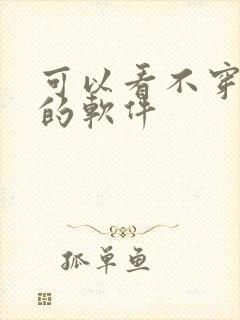 可以看不穿
的軟件
孤单鱼